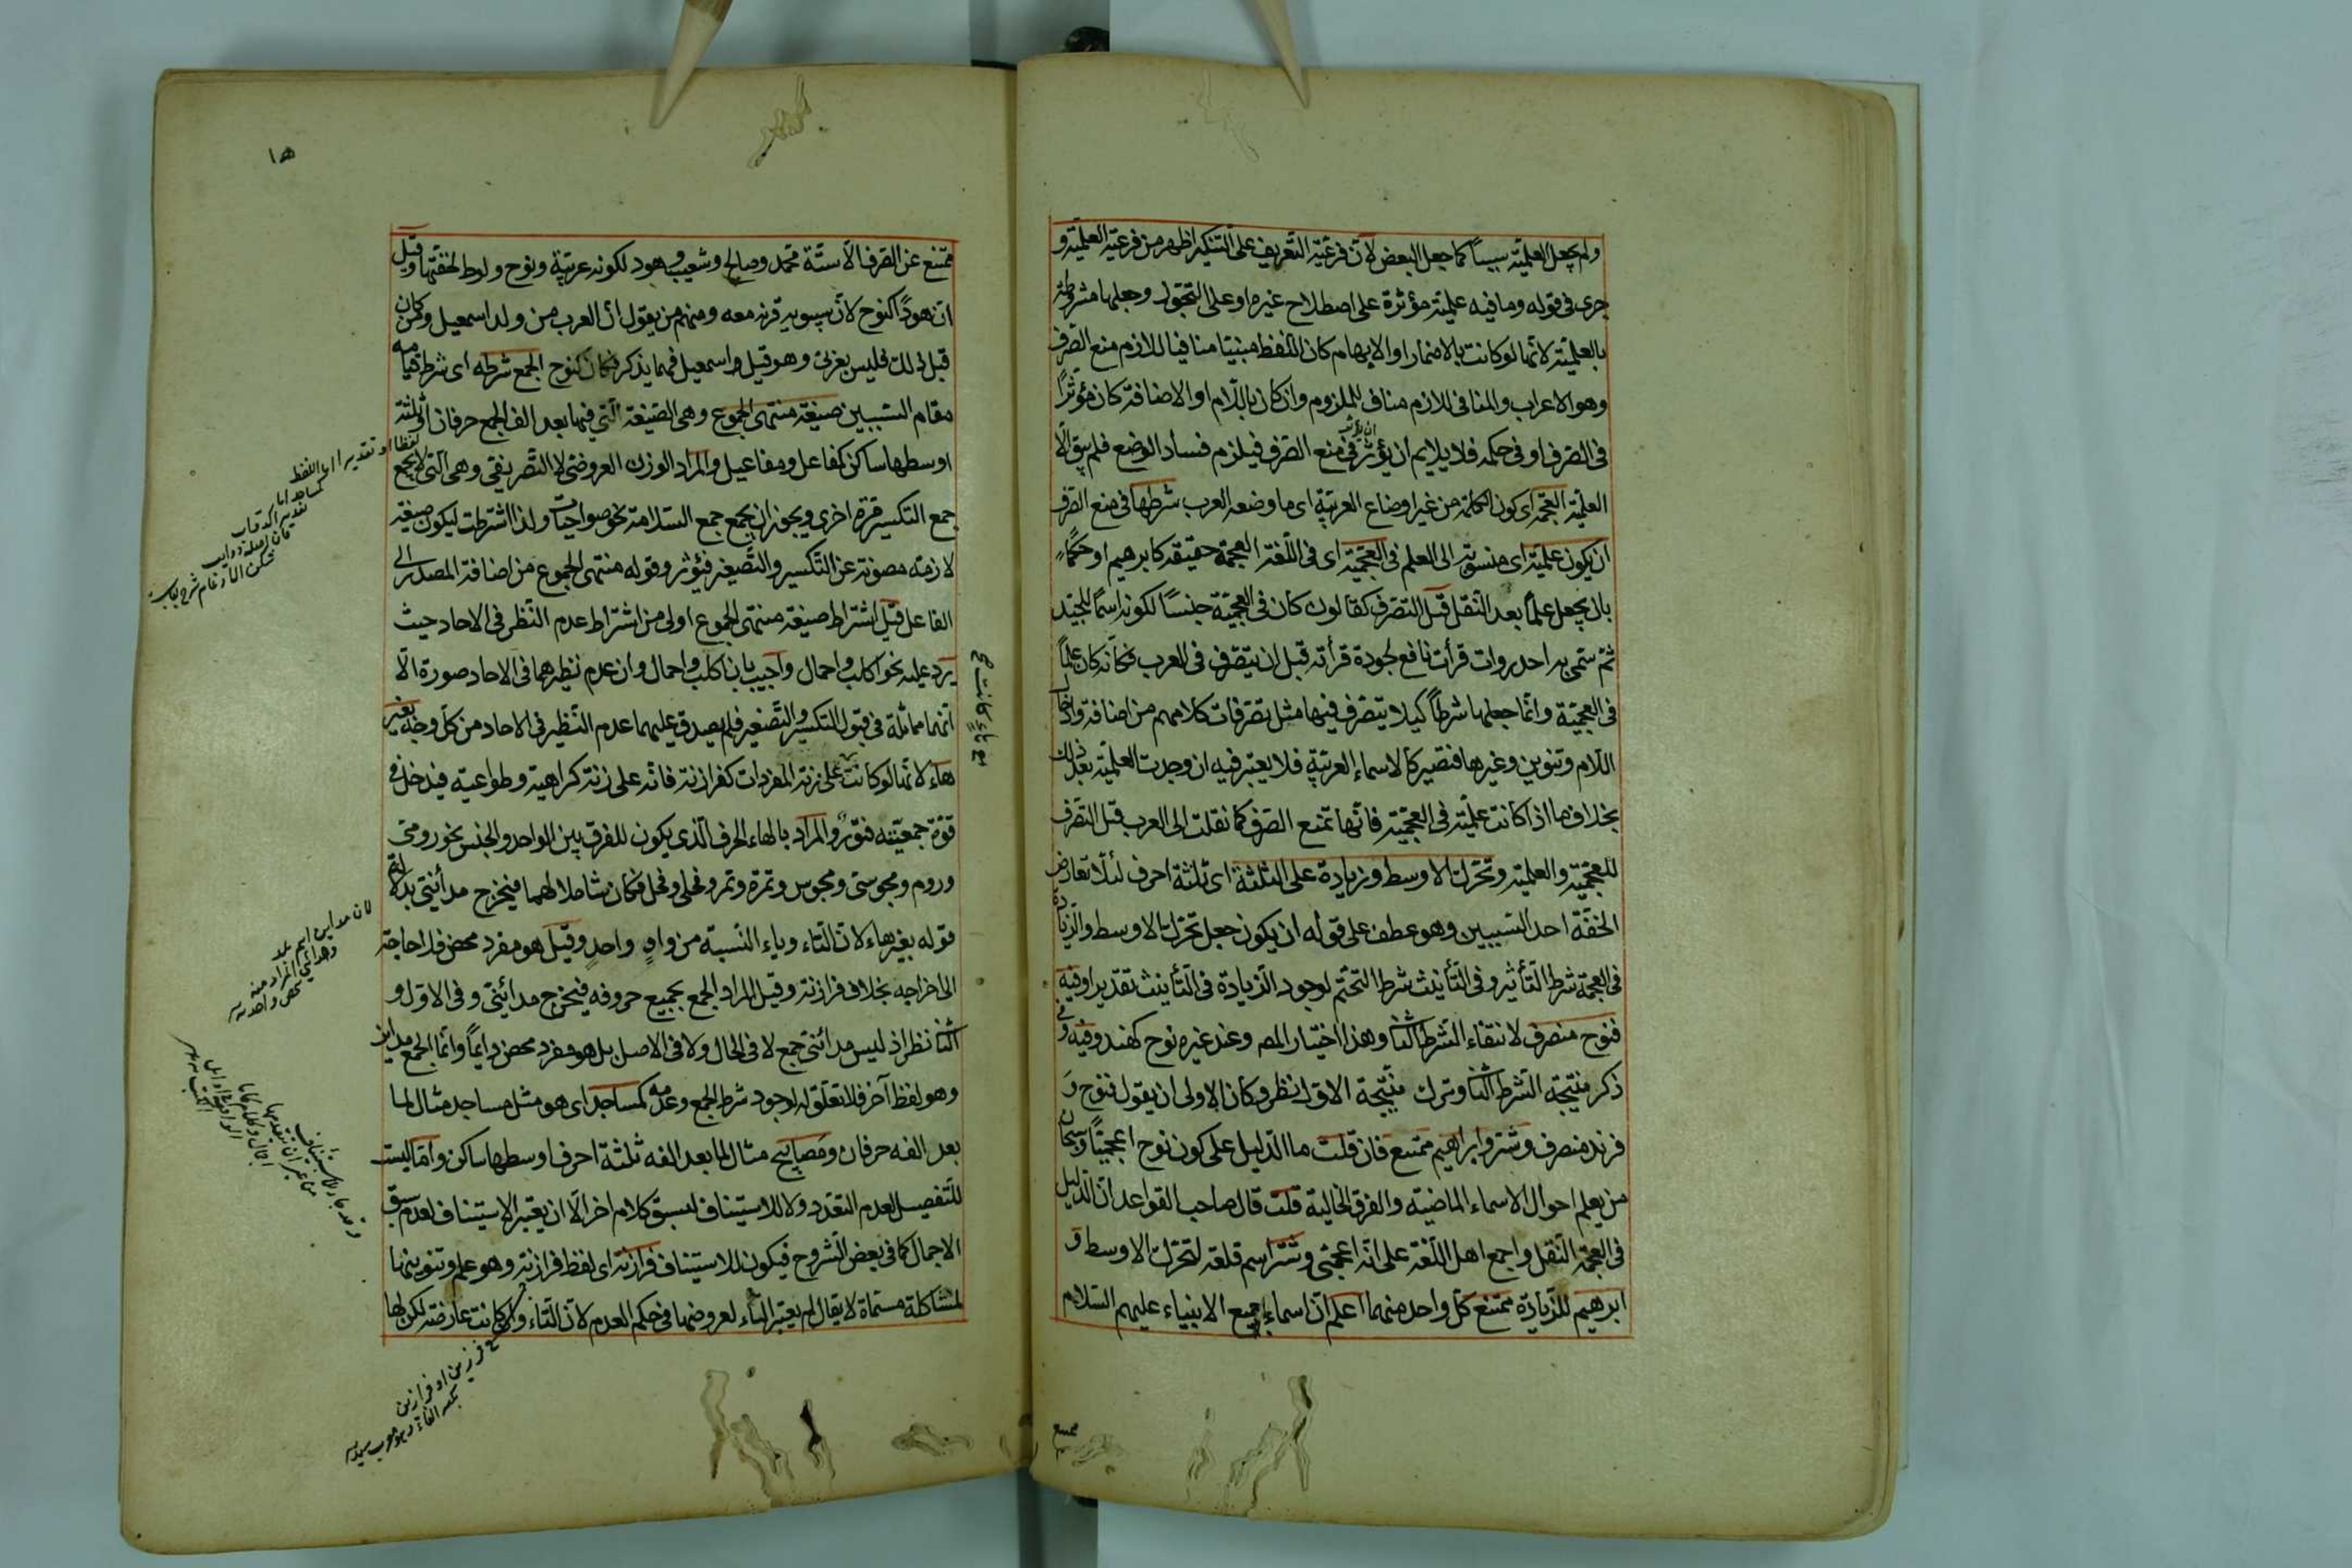 ولم يجعل العلميّة سبباً كما جعل البعض لأنّ فرعيّة التّعريف على التّنكير اظهر من فرعيّة العلميّة و
جرى فى قوله وما فيه علميّة مؤثرة على اصطلاح غيره او على التجوّز وجعلها مشروطة
بالعلميّة لانّها لو كانت بالاضمار او الابهام كان اللّفظ مبنيّا منافيا للازم منع الصّرف
وهو الاعراب والمنافى للازم مناف للملزوم وان كان باللّام او الاضافة كان مؤثّراً
فى الصّرف او فى حكمه فلا يلايم ان يؤثّر فى منع الصّرف فيلزم فساد الوضع فلم يبق الّا
العلميّة العجمة اى كون الكلمة من غير اوضاع العربيّة اى ما وضعه العرب شرطها فى منع الصّرف
ان يكون علميّة اى منسوبة الى العلم فى العجميّة اى فى اللّغة العجمة حقيقة كابرهيم او حكماً
بان يجعل علماً بعد النّقل قبل التصرّف كقالون كان فى العجميّة جنساً لكونه اسماً للجيّد
ثمّ سمّى به احد روات قرأت نافع لجودة قرأته قبل ان يتصرّف فى العرب فكأنّه كان علماً
فى العجميّة وانّما جعلها شرطاً كيلا يتصرّف فيها مثل تصرّفات كلامهم من اضافة وادخال
اللّام وتنوين وغيرها فتصير كالاسماء العربيّة فلا يعتبر فيه ان وجدت العلميّة بعد ذلك
بخلاف ما اذا كانت علميّة فى العجميّة فانّها تمنع الصّرف كما نقلت الى العرب قبل التصرّف
للعجميّة والعلميّة وتحرّك الاوسط وزيادة على الثلثة اى ثلثة احرف لئلّا تعارض
الخفّة احد السّببين وهو عطف على قوله ان يكون جعل تحرّك الاوسط والزّيادة
فى العجمة شرط التّأثير وفى التّأنيث شرط التحتّم لوجود الزيادة فى التّأنيث تقديرا وفيه
فنوح منصرف لانتفاء الشّرط الثّانى وهذا اختيار المص وعند غيره نوح كهند وفيه
ذكر نتيجة الشّرط الثّانى وترك نتيجة الاوّل نظر وكان الاولى ان يقول فنوح و
فرند منصرف وشتر وابراهيم ممتنع فان قلت ما الدّليل على كون نوح اعجميّاً وسبحان
من يعلم احوال الاسماء الماضية والفرق الخالية قلت قال صاحب القواعد انّ الدّليل
فى العجمة النّقل واجمع اهل اللّغة على انّه اعجمىّ وشتر اسم قلعة لتحرّك الاوسط و
ابرهيم للزّيادة ممتنع كلّ واحد منهما اعلم انّ اسماء جميع الانبياء عليهم السّلام
ممتنع
١٥
ممتنع عن الصّرف الّا ستّة محمّد وصالح وشعيب وهود لكونه عربيّة ونوح ولوط لخفّتهما وقيل
انّ هوداً كنوح لانّ سيبويه قرنه معه ومنهم من يقول انّ العرب من ولد اسمعيل ومن كان
قبل ذلك فليس بعربىّ وهو قبل اسمعيل فيما يذكر فكان كنوح الجمع شرطه اى شرط قيامه
مقام السّببين صيغة منتهى الجموع وهى الصّيغة الّتى فيها بعد الف الجمع حرفان او ثلثة
اوسطها ساكن كمفاعل ومفاعيل والمراد الوزن العروضى لا التّصريفى وهى الّتى لا يجمع
جمع التكسير مرّة اخرى ويجوز ان يجمع جمع السّلامة نحو صواحبات ولذا اشترطت ليكون صيغة
لازمة مصونة عن التّكسير والتّصغير فيؤثر وقوله منتهى الجموع من اضافة المصدر الى
الفاعل قيل اشتراط صيغة منتهى الجموع اولى من اشتراط عدم النّظر فى الاحاد حيث
يرد عليه نحو اكلب واحمال واجيب بان اكلب واحمال وان عدم نظيرهما فى الاحاد صورة الّا
انّها مماثلة فى قبول التكسير والتّصغير فلم يصدق عليهما عدم النّظير فى الاحاد من كلّ وجه بغير
هاء لانّها لو كانت على زنة المفردات كفرازنة فانّه على زنة كراهية وطواعية فيدخل فى
قوّة جمعيّته فتور والمراد بالهاء الحرف الّذى يكون للفرق بين الواحد والجنس نحو رومىّ
وروم ومجوسىّ ومجوس وتمرة وتمر ونخلة ونخل فكان شاملا لهما فيخرج مدائنىّ
قوله بغير هاء لانّ التّاء وياء النّسبة من وادٍ واحدٍ وقيل هو مفرد محض فلا حاجة
الى اخراجه بخلاف فرازنة وقيل المراد الجمع بجميع حروفه فيخرج مدائنىّ وفى الاوّل و
الثّانى نظر اذ ليس مدائنىّ جمع لا فى الحال ولا فى الاصل بل هو مفرد محض دايماً وانّما الجمع مداين
وهو لفظ آخر فلا تعلّق له لوجود شرط الجمع وعدمه كمساجد اى هو مثل مساجد مثال لما
بعد الفه حرفان ومصابيح مثال لما بعد الفه ثلثة احرف اوسطها ساكن وامّا ليست
للتّفصيل لعدم التعدّد ولا للاستيناف لسبق كلام اخر الّا ان يعتبر الاستيناف لعدم سبق
الاجمال كما فى بعض الشّروح فيكون للاستيناف فرازنة اى لفظ فرازنة وهو علم وتنوينها
لمشاكلة مسمّاة لا يقال لم يعتبر التّاء لعروضها فى حكم العدم لانّ التّاء وان كانت عارضة لكن لها